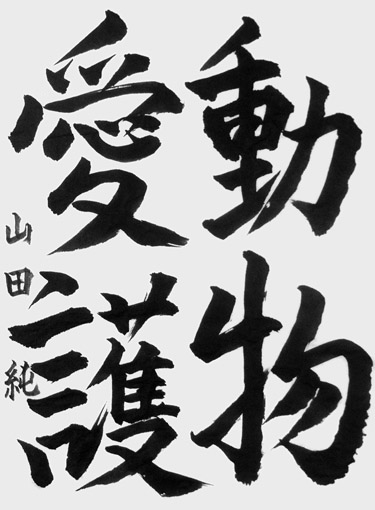 動物
愛護
山田純